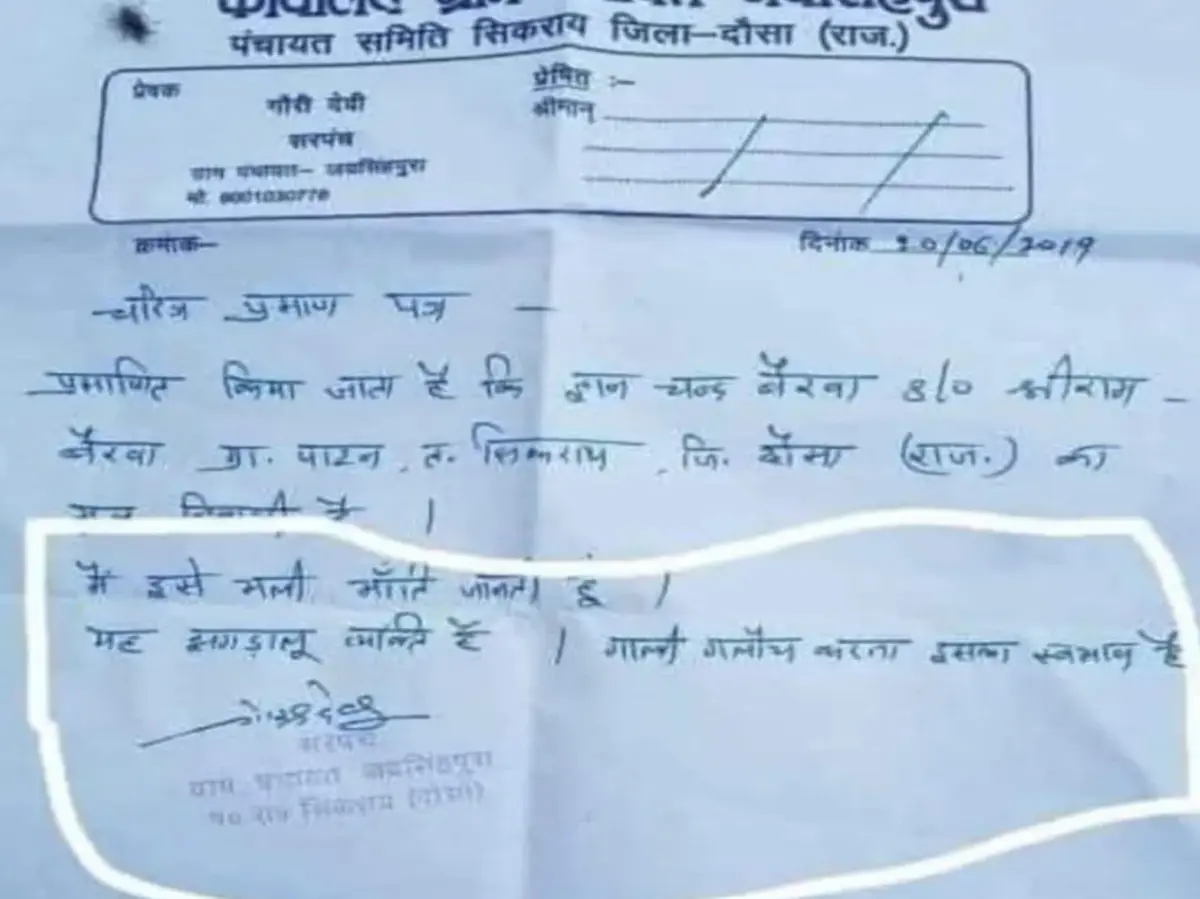 पंचायत समिति सिकराय जिला-दौसा (राज.)
प्रेषक
गौरी देवी
सरपंच
ग्राम पंचायत- जयसिंहपुरा
मो.
प्रेषित :-
श्रीमान्
क्रमांक-
दिनांक 20/06/2019
चरित्र प्रमाण पत्र -
प्रमाणित किया जाता है कि ज्ञान चन्द बैरवा S/o श्रीराम -
बैरवा ग्रा. पाटन त. सिकराय जि. दौसा (राज.) का
मूल निवासी है ।
मैं इसे भली भाँति जानती हूं ।
यह झगड़ालू व्यक्ति है । गाली गलौच करना इसका स्वभाव है
सरपंच
ग्राम पंचायत जयसिंहपुरा
पं० स० सिकराय (दौसा)